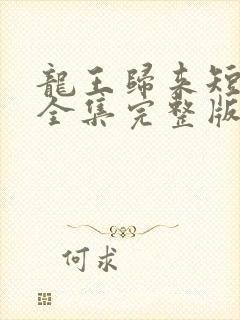 龍王歸来短
全集完整版
何求